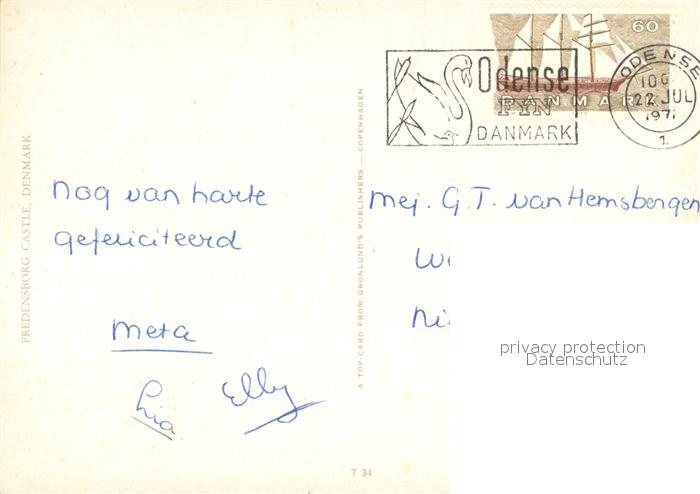 60
DANMARK
Odense
FYN
DANMARK
ODENSE
22 JUL
1
FREDENSBORG CASTLE, DENMARK
A TOP-CARD FROM GRØNLUND'S PUBLISHERS — COPENHAGEN
nog van harte
gefeliciteerd
Meta
Lia
Elly
mej. G.T. van Hemsbergen
privacy protection
Datenschutz
T 34